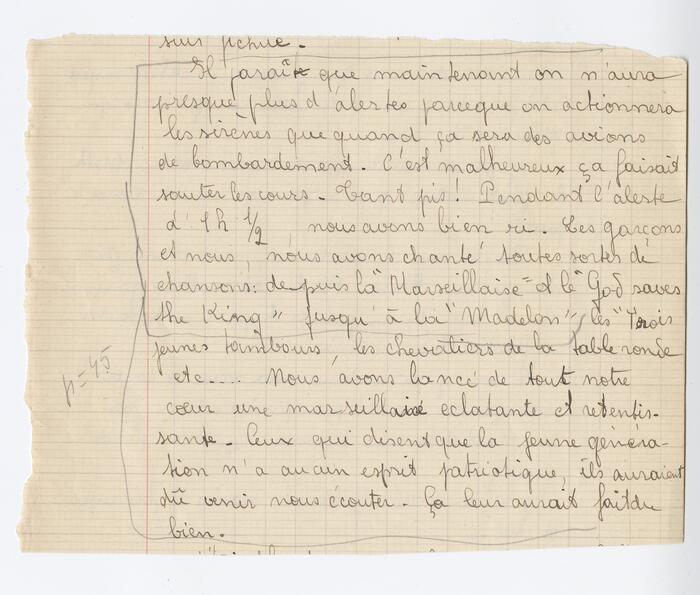 suis fichue.
Il paraît que maintenant on n'aura
presque plus d'alertes parceque on actionnera
les sirènes que quand ça sera des avions
de bombardement. C'est malheureux ça faisait
sauter les cours. Tant pis! Pendant l'alerte
d'1h 1/2 nous avons bien ri. Les garçons
et nous, nous avons chanté toutes sortes de
chansons: depuis la "Marseillaise" et le "God saves
the King" jusqu'à la "Madelon", les "Trois
jeunes tambours, les chevaliers de la table ronde
etc.... Nous avons lancé de tout notre
cœur une marseillaise eclatante et retentis-
sante. Ceux qui disent que la jeune généra-
tion n'a aucun esprit patriotique, ils auraient
dû venir nous écouter. Ça leur aurait fait du
bien.
p=45